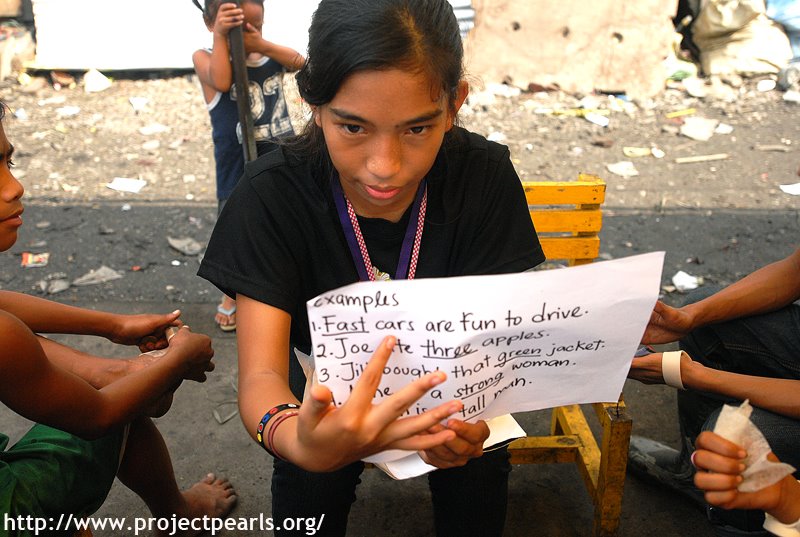 examples
1. Fast cars are fun to drive.
2. Joe ate three apples.
3. Jill bought that green jacket.
a strong woman.
is tall man.
http://www.projectpearls.org/